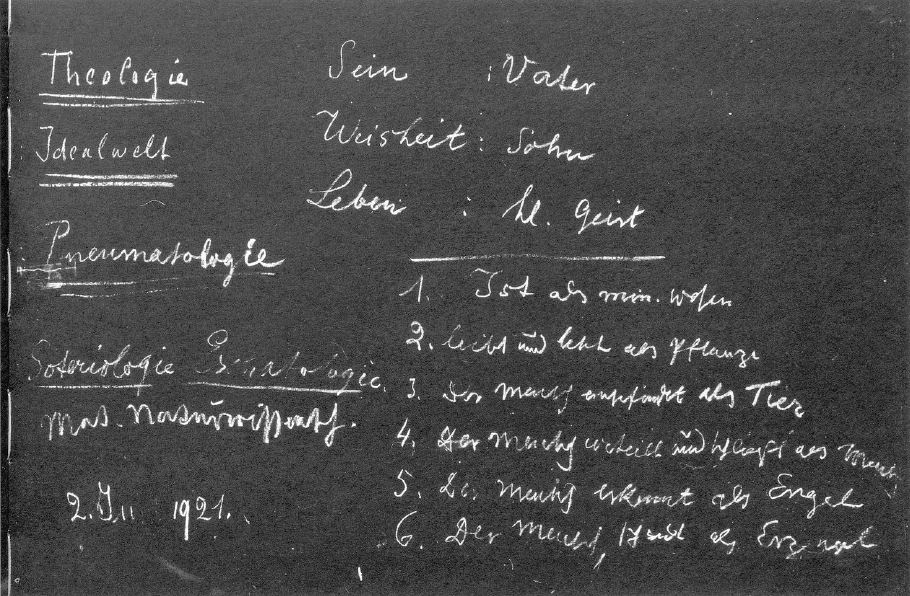 Theologie
Sein : Vater
Idealwelt
Weisheit : Sohn
Leben : hl. Geist
Pneumatologie
1. Ist als min. Wesen
2. leibt und lebt als Pflanze
Soteriologie Eschatologie
3. Der Mensch empfindet als Tier
Mat. Naturwissensch.
4. Der Mensch urteilt und schließt als Mensch
5. Der Mensch erkennt als Engel
2. III 1921.
6. Der Mensch, als